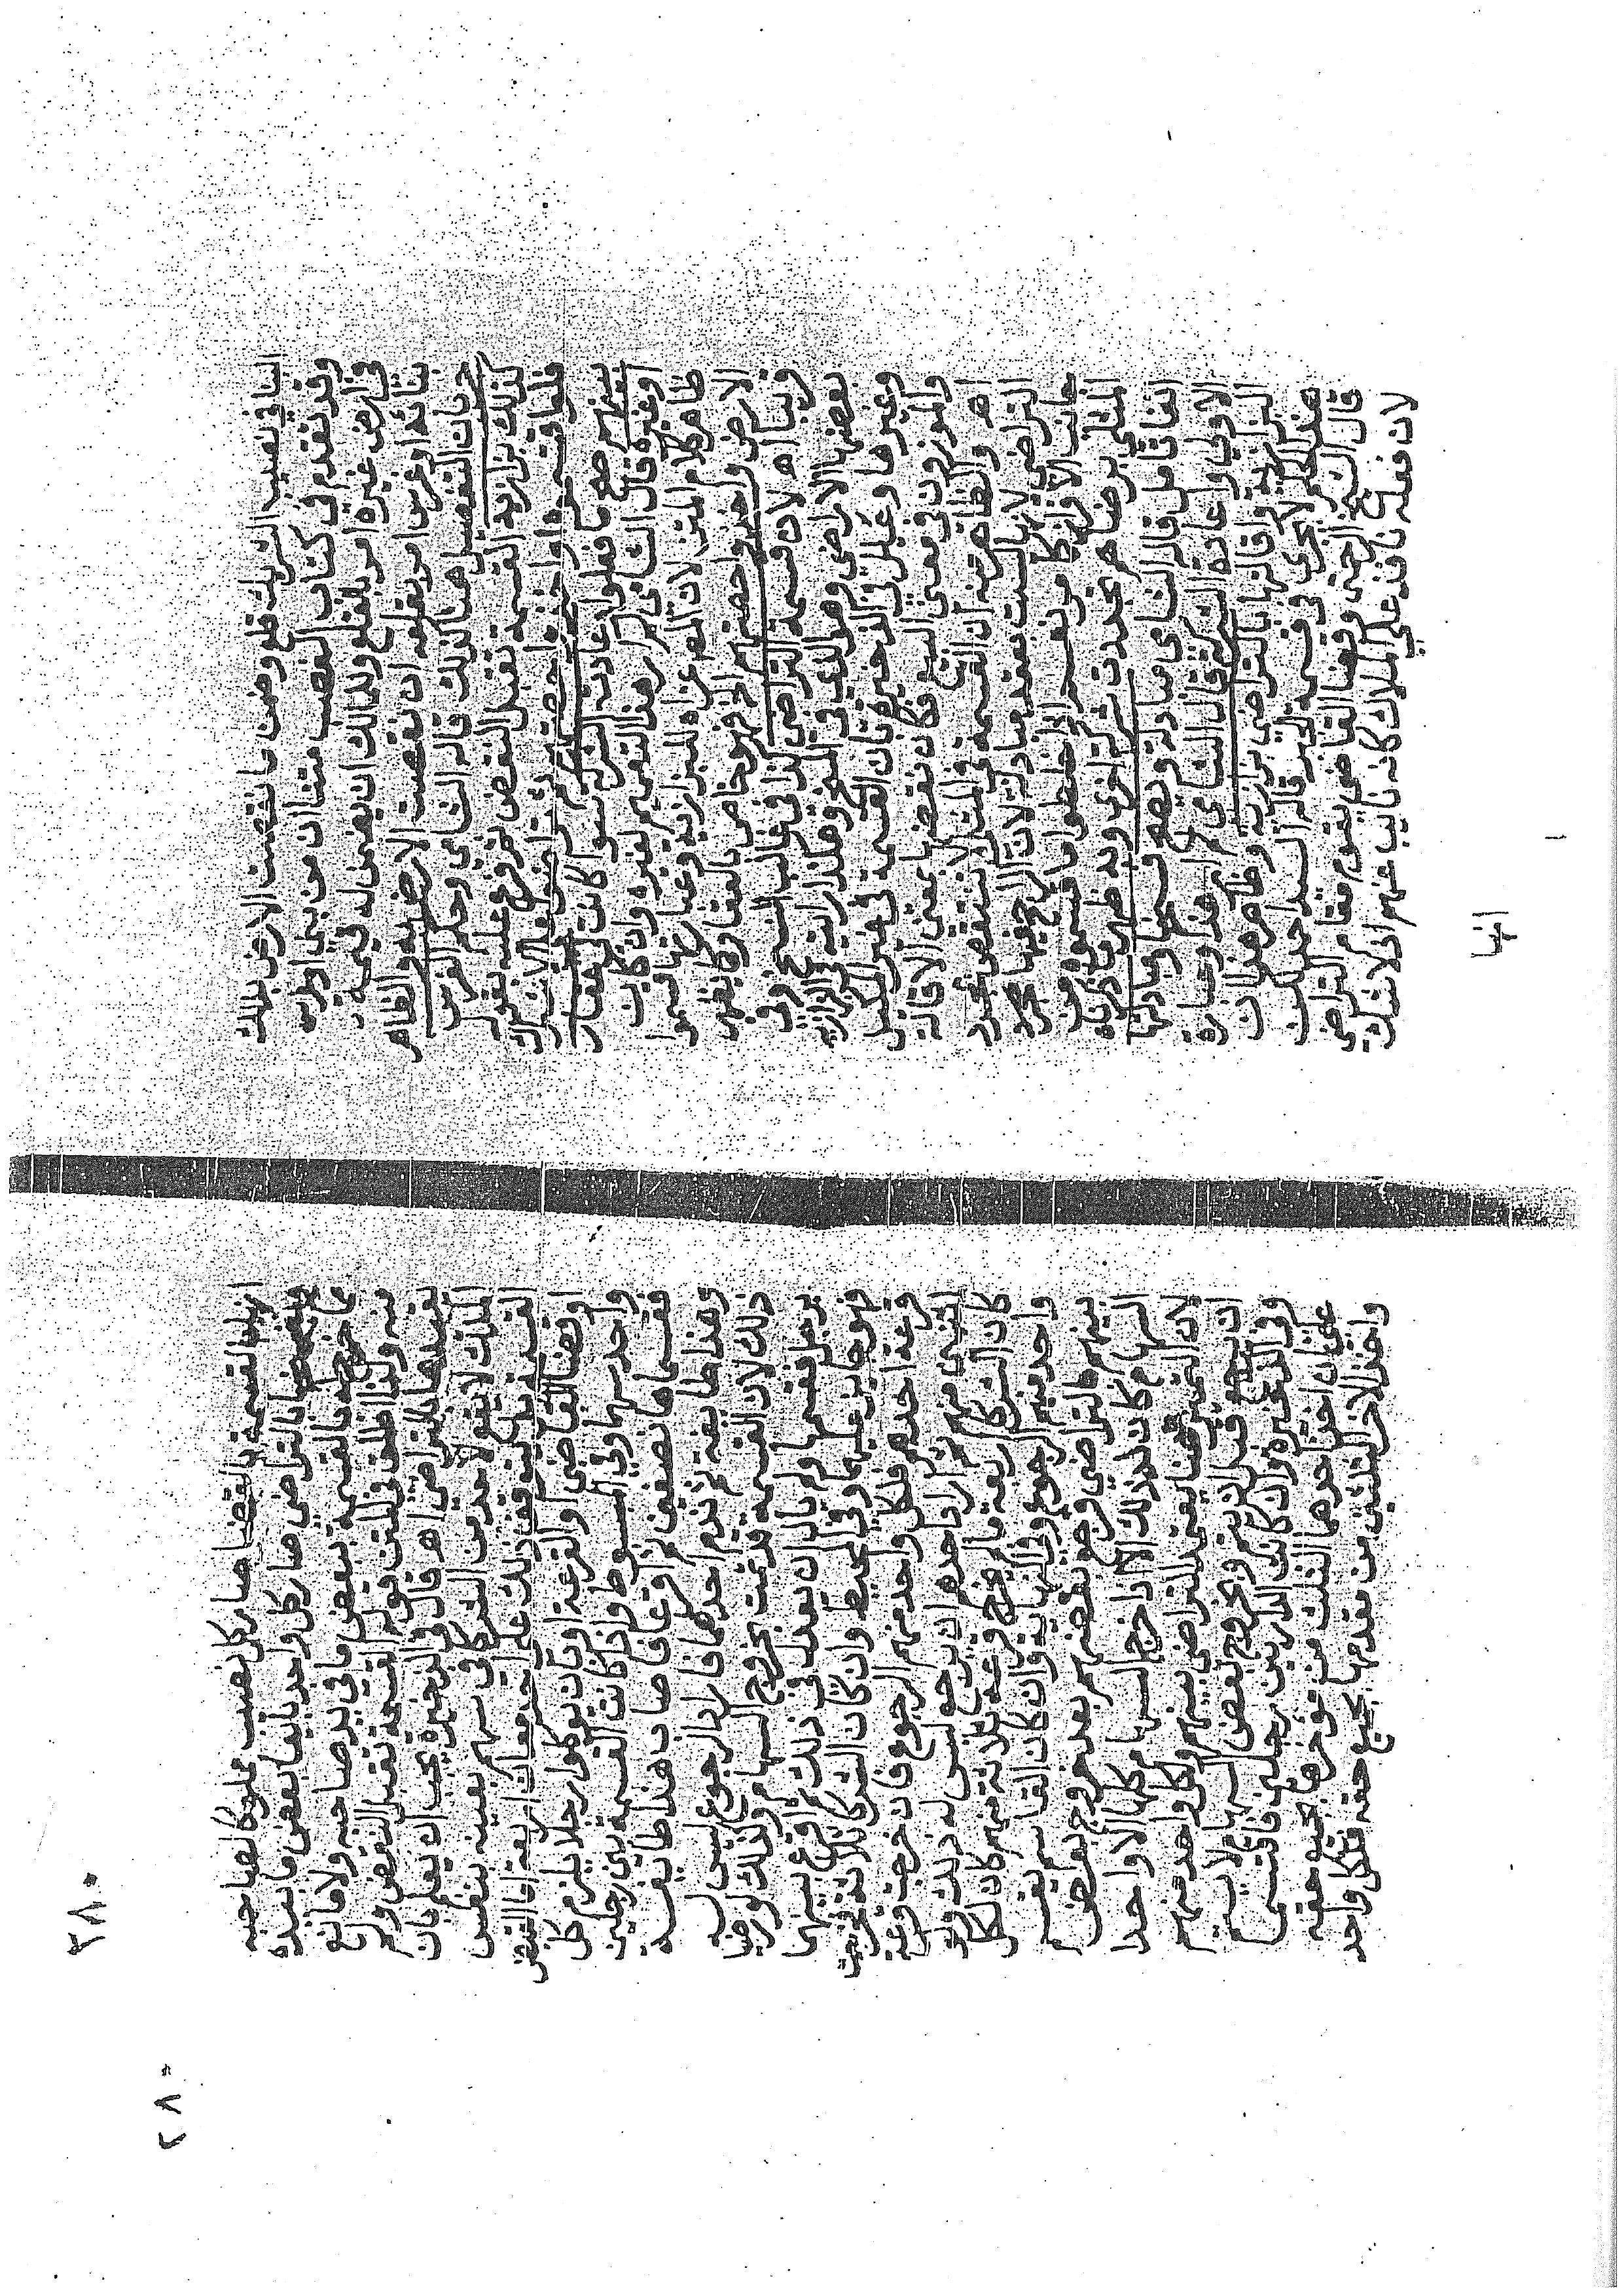 البنا في نصيب الشريك قلع وضمن ما نقصت الارض بذلك
وقد تقدم في كتاب الغصب متنا ان من بنى او غرس
في ارض غيره امر بالقلع وللمالك ان يضمن له قيمة
بنائه او غرس امر بقلعه ان نقصت الارض به والظاهر
جريان التفصيل هنا كذلك قاله الشامي وحكم الغرس
كذلك بزازيه القسمة تقبل النقض ثم فرع عليه بقوله
فلو اقتسموا واخذوا حصتهم ثم تراضوا على الاشتراك
بينهم صح ما فعلوا وعادت الشركة سوا كانت لعقار
او غيره قال الشامي هذا التعميم لغيره وان كانت
ظاهر كلام المتن لان المص عزاه للبزازية وعبارتها قسموا
الاراضي واخذوا حصتهم الخ فهو خاص بالعقار كما يظهر
قريبا اه لان قسمة التراضي الذي في غالب النسخ وفي
بعضها الاراضي وهو الذي في المنح وهكذا رايته في البزازية
وغيرها وعلله في الذخيرة بان القسمة في غير المكيل
والموزون في معنى البيع فكان نقضها بمعنى الاقالة
اه والظاهر منه ان القسمة في المثلي لا تنتقض بمجرد
التراضي لانها ليست بعقد مبادلة لان الراجح فيها
جانب الافراز كما مر نعم اذا خلطوا ما قسموه من
المثلي برضاهم تجددت شركة اخرى وبه ظهر ما قررناه
اتفاقا قاله الشامي مبادلة ويصح فسخها ومبادلتها
واعادة الشركة قال الشامي هذا وعبارة
البزازية واقالتها بالتراضي بزازية وظاهره ان
هذا الحكم لا يجري في قسمة الجبر قاله السيد احمد لكن
قال الشيخ وقضا القاضي يقوم مقام التراضي
لان فعله نافذ على الملاك كانه نايب عنهم اذ لا شك
انها
٢٨٠
٢٨٠
انها القسمة بالقضا صار كل نصيب مملوكا لصاحبه
بالتراضي صار كل واحد بايعا بعض ما بيده
مما خرج له بالقسمة ببعض ما في يد صاحبه ولا مانع
منه ولذا اطلق في المتن قوله القسمة تقبل النقض ولم
يقيدها بالتراضي اه قال في الذخيرة يجب ان يعلم بان
الملك لا يقع لاحد من الشركا في سهم بعينه بنفس
القسمة بل يتوقف ذلك على احد معان اربعة اما القبض
او قضا القاضي او القرعة او بان يوكلوا رجلا يلزم كل
واحد سهما وفي المبسوط واذا كانت القسمة بين رجلين
فقسماها نصفين ثم اقرعا فاصاب هذا طايفة
وهذا طايفة ثم ندم احدهما فاراد الرجوع ليس له
ذلك لان القسمة قد تمت بخروج السهام وكذلك لو رضيا
برجل فقسم ولم يال ان يعدل في ذلك ثم اقرع بينهما
فهو جايز عليهما وفي المحيط وان كان الشركا ثلاثة فخرجت
قرعة احدهم فلكل واحد منهم الرجوع فان خرجت قرعة
اثنين منهم ثم اراد احدهم ان يرجع ليس له ذلك ولو
كان الشركا اربعة ما لم يخرج قرعة ثلاثة منهم كان لكل
واحد منهم الرجوع وفي النهاية وان كان القاسم يقسم
بينهم بالتراضي فرجع بعضهم بعد خروج بعض
السهام كان له ذلك الا اذا خرج السهام كلها الا واحدا
لان التمييز هنا يعتمد التراضي بينهم ولكل واحد منهم
ان يرجع قبل ان يتم وبخروج بعض السهام لا يتم
وفي الذخيرة وان كانت الدار بين رجلين فاقتسما
على ان اخذ احدهما الثلث من موخرها بجميع حقه
واخذ الاخر الثلثين من مقدمها بجميع حقه فلكل واحد